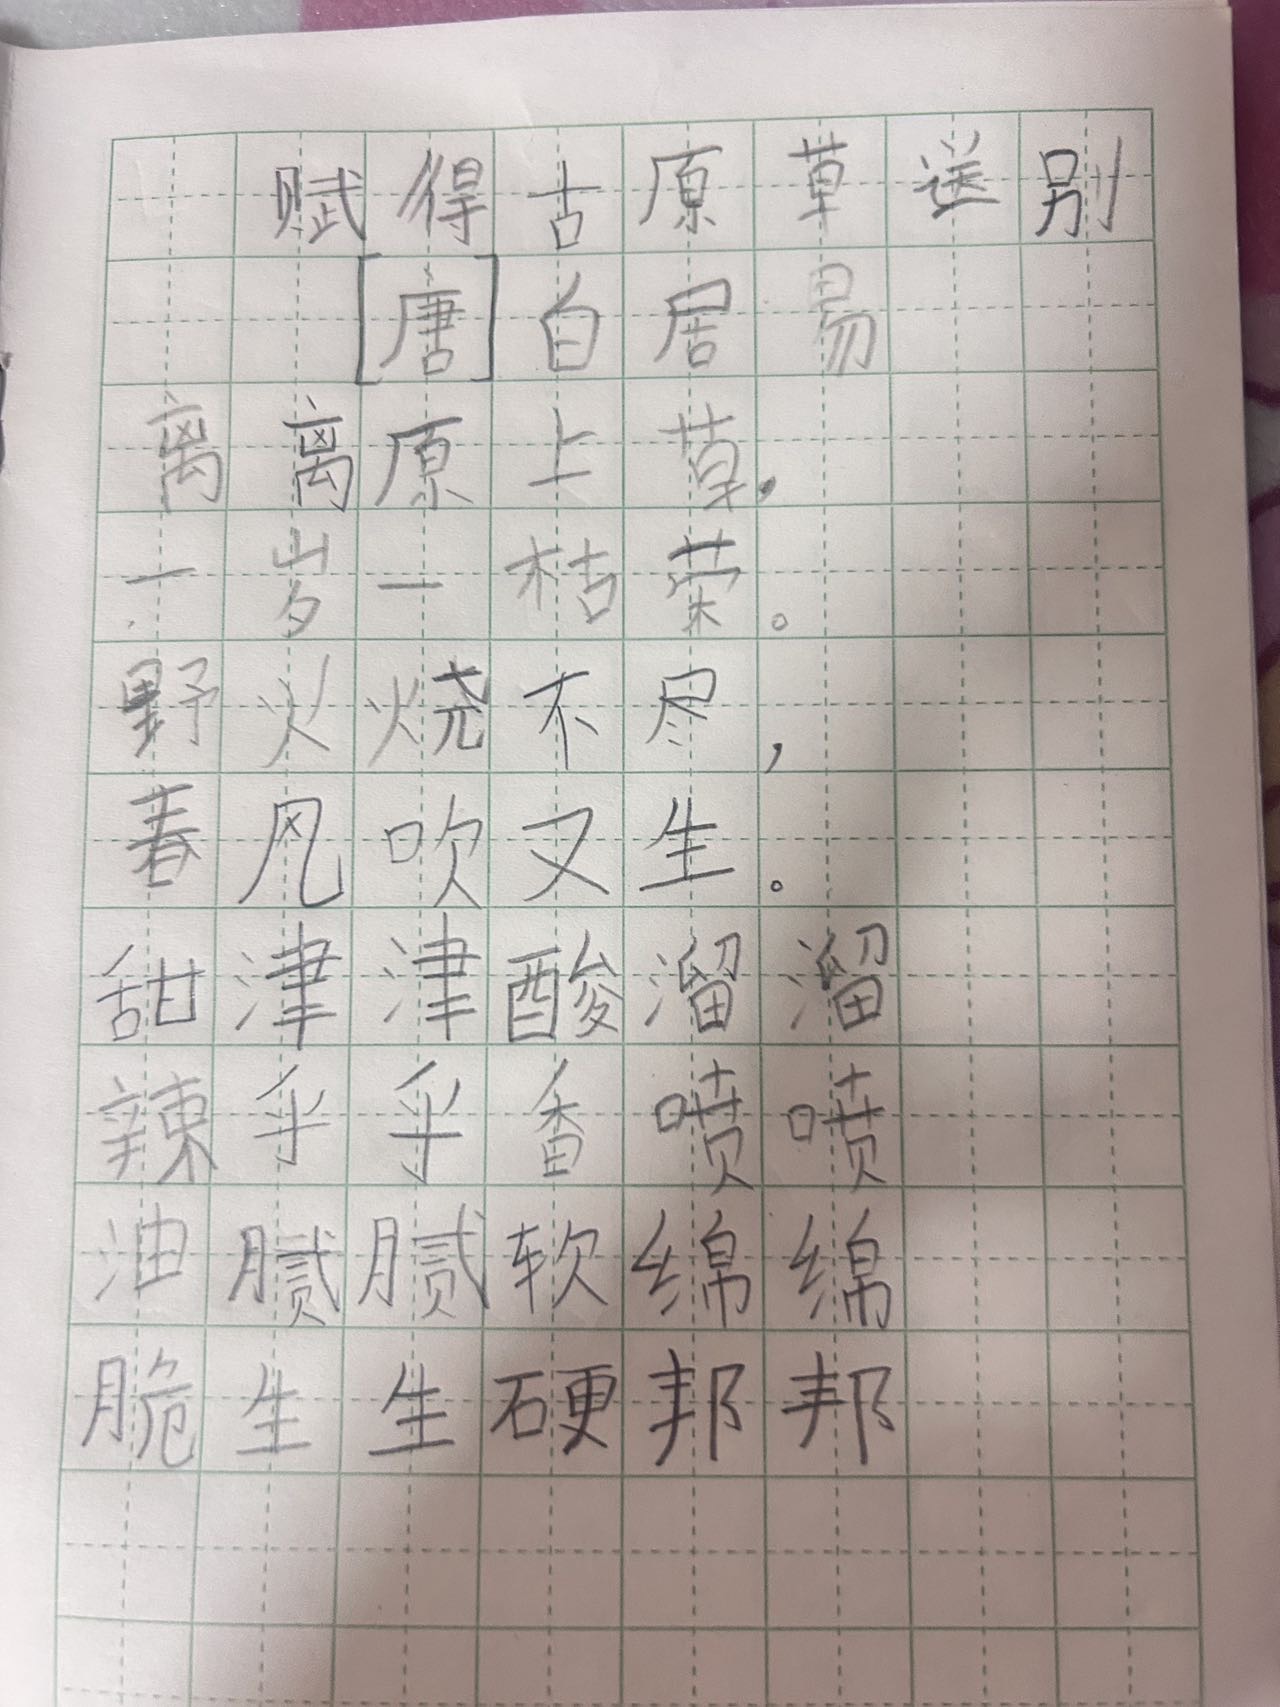 赋得古原草送别
[唐]白居易
离离原上草,
一岁一枯荣。
野火烧不尽,
春风吹又生。
甜津津酸溜溜
辣乎乎香喷喷
油腻腻软绵绵
脆生生硬邦邦